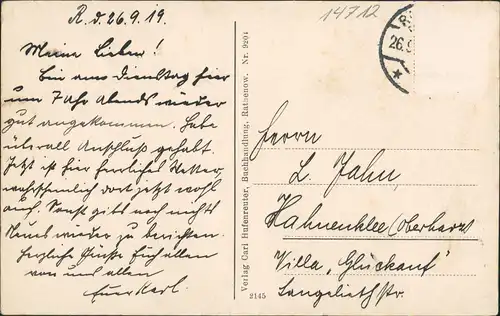 R. d. 26.9.19.
14712
26.9
Meine Lieben!
Bin am Dienstag hier
um 7 Uhr abends wieder
gut angekommen. Habe
überall Anschluß gehabt.
Jetzt ist hier herrliches Wetter,
wahrscheinlich dort jetzt wohl
auch. Sonst gibts noch nichts
Neues wieder zu berichten.
Herzliche Grüße Euch allen
von uns allen
Euer Karl.
Verlag Carl Hufenreuter, Buchhandlung, Rathenow. Nr. 9204
2145
Herrn
L. Jahn,
Hahnenklee (Oberharz)
Villa „Glückauf"
Langeliethstr.